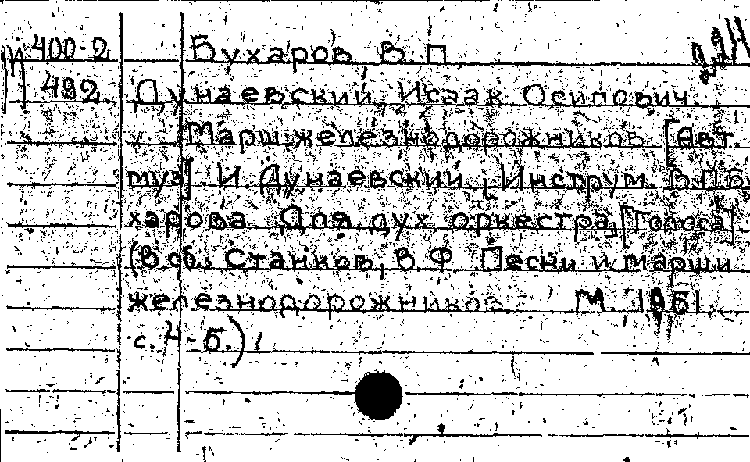 М 400-2 Бухаров В. П.
482 Дунаевский, Исаак Осипович.
Марш железнодорожников [Авт.
муз] И. Дунаевский, Инструм. В.П.Бу
харова. Для дух оркестра, [Голоса].
(В сб.: Станков, В.Ф Песни и марши
железнодорожников. М. 1961.
с. 4-5.)